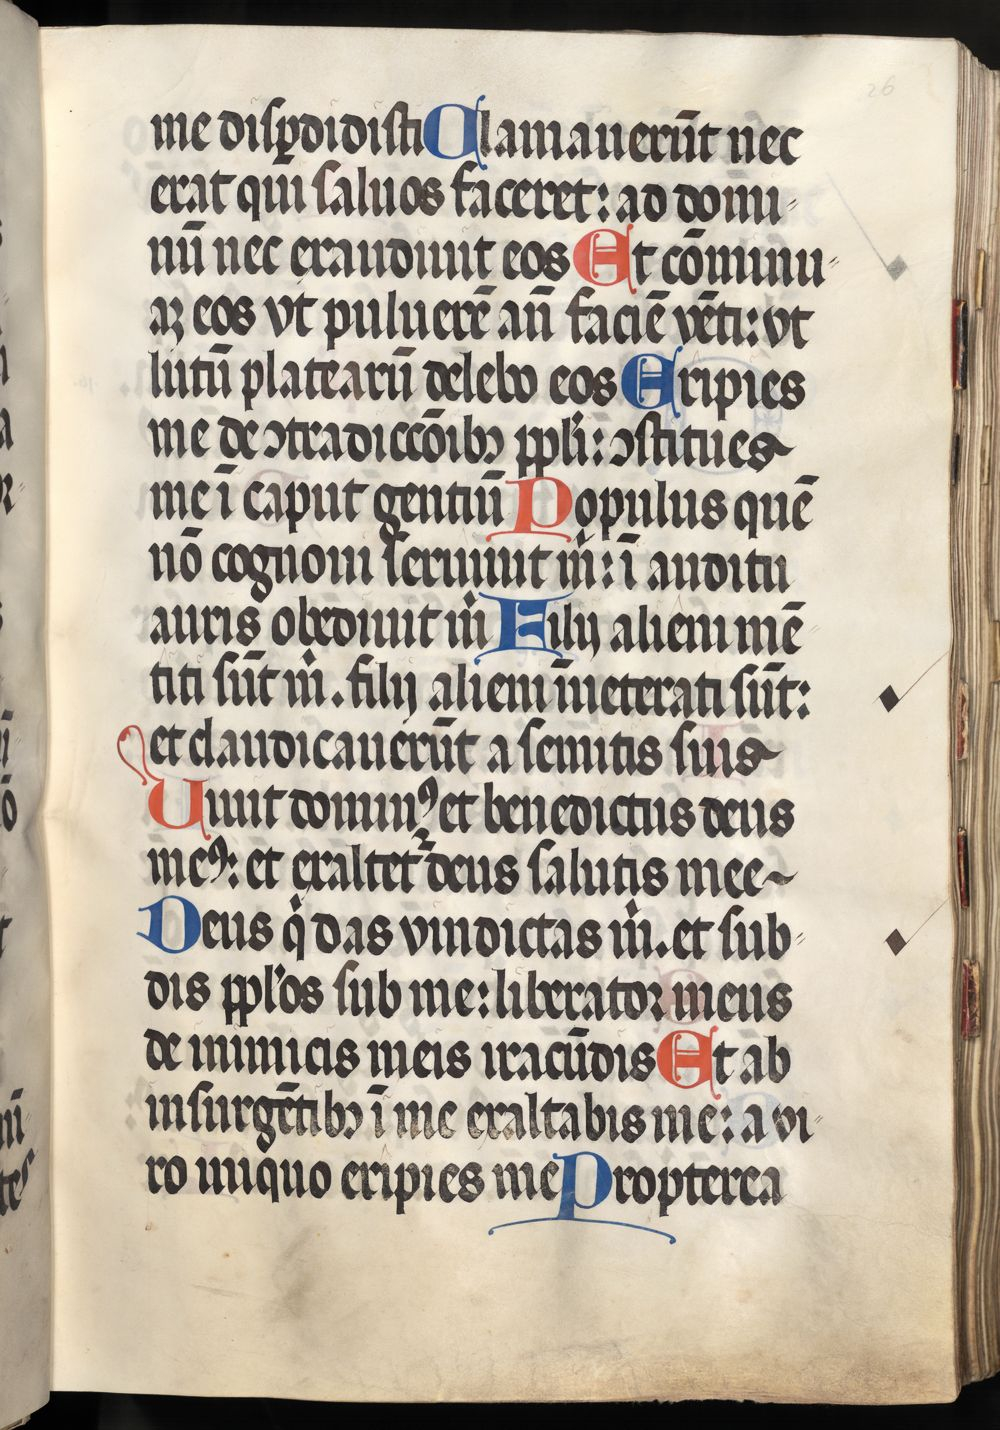 26
me disꝑdidisti Clamauerūt nec
erat qui saluos faceret: ad domi-
nū nec exaudiuit eos Et cōminu-
aꝫ eos vt puluerē an̄ faciē vēti: vt
lutū platearū delebo eos Eripies
me de ꝯtradiccōibꝫ ppl̓i: ꝯstitues
me ī caput gentiū Populus quē
nō cognoui seruiuit m̓: ī auditu
auris obediuit m̓ Filij alieni mē
titi sūt m̓. filij alieni īueterati sūt:
et claudicauerūt a semitis suis
Uiuit dominꝰ et benedictus deus
meꝰ: et exaltet᷑ deus salutis mee~
Deus q̓ das vindictas m̓. et sub-
dis ppl̓os sub me: liberatoꝛ meus
de inimicis meis iracūdis Et ab
insurgētibꝫ ī me exaltabis me: a vi-
ro iniquo eripies me Propterea